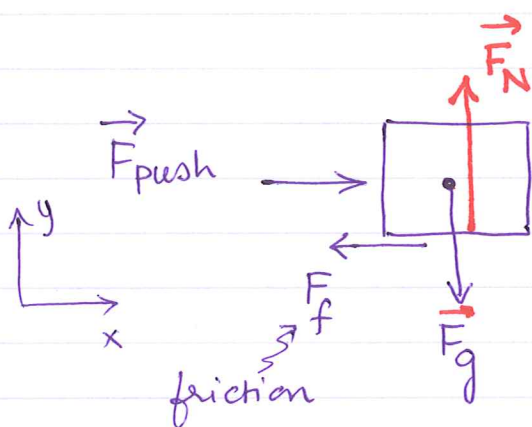 F_N
F_push
y
x
F_f
F_g
friction